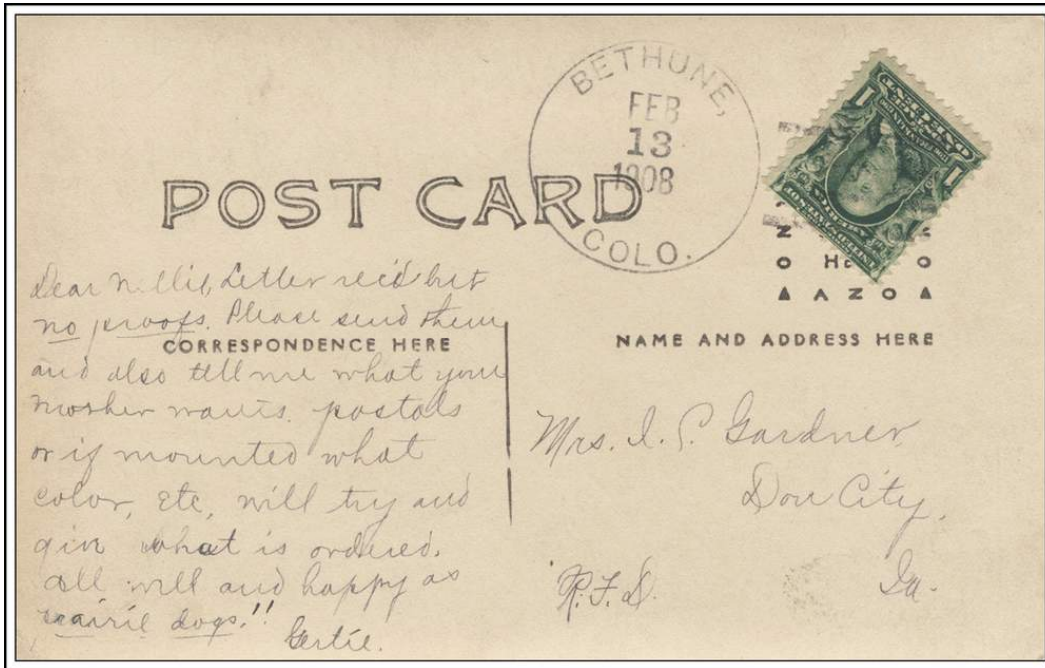 BETHUNE,
FEB
13
1908
COLO.
POST CARD
AZO
CORRESPONDENCE HERE
NAME AND ADDRESS HERE
Dear Nellie, Letter rec'd but
no proofs. Please send them
and also tell me what your
Mother wants. postals
or if mounted what
color, etc, will try and
give what is ordered.
all well and happy as
prairie dogs!!
Gertie.
Mrs. I. P. Gardner
Dow City,
R.F.D. Ia.